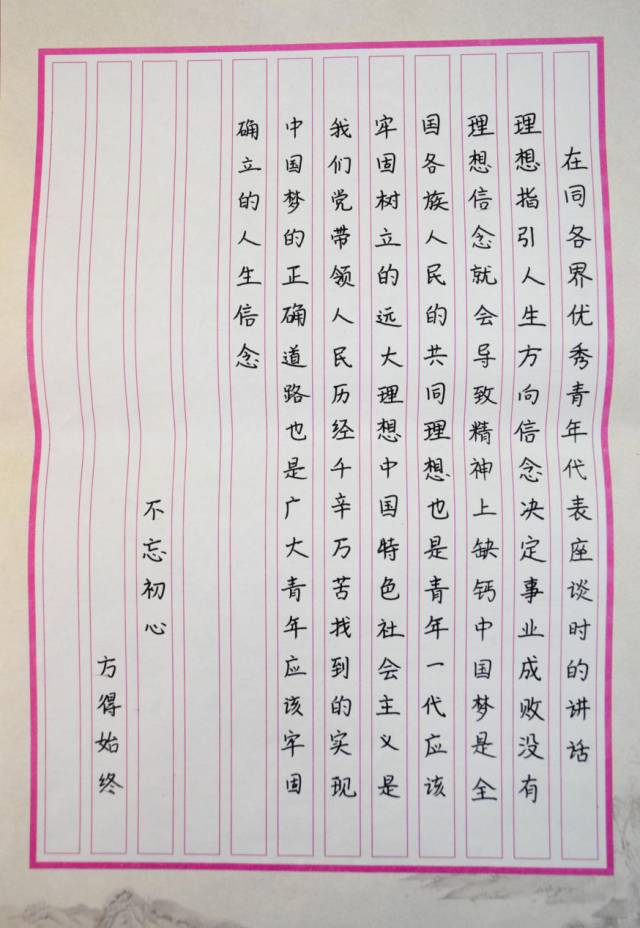 在同各界优秀青年代表座谈时的讲话
理想指引人生方向信念决定事业成败没有
理想信念就会导致精神上缺钙中国梦是全
国各族人民的共同理想也是青年一代应该
牢固树立的远大理想中国特色社会主义是
我们党带领人民历经千辛万苦找到的实现
中国梦的正确道路也是广大青年应该牢固
确立的人生信念
不忘初心
方得始终